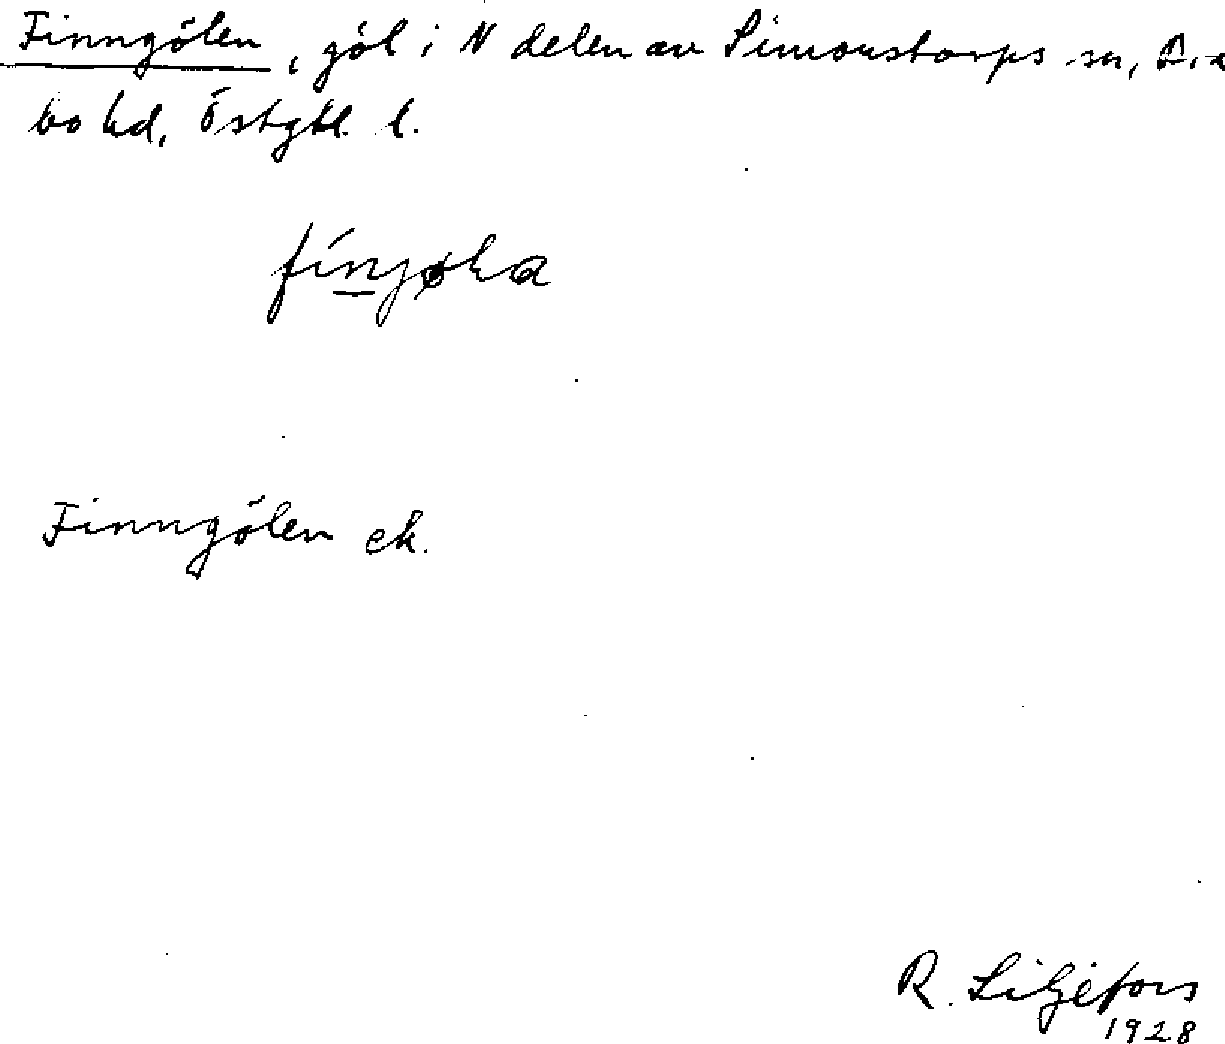 Finngölen, göl i N delen av Simonstorps sn,
bo hd, Östgtl. l.
Finngölen ek.
R. Liljefors
1928